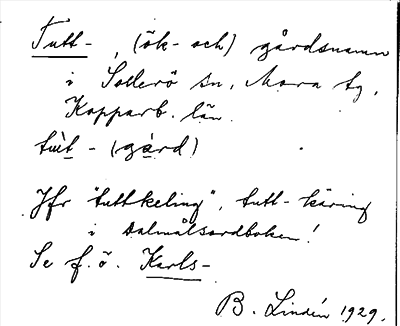 Tutt-, (ök- och) gårdsnamn
i Sollerö sn, Mora tg,
Kopparb. län.
tùt - (gård)
Jfr "tuttkeling", tutt-käring
i Dalmålsordboken!
Se f. ö. Karls-
B. Lindén 1929.